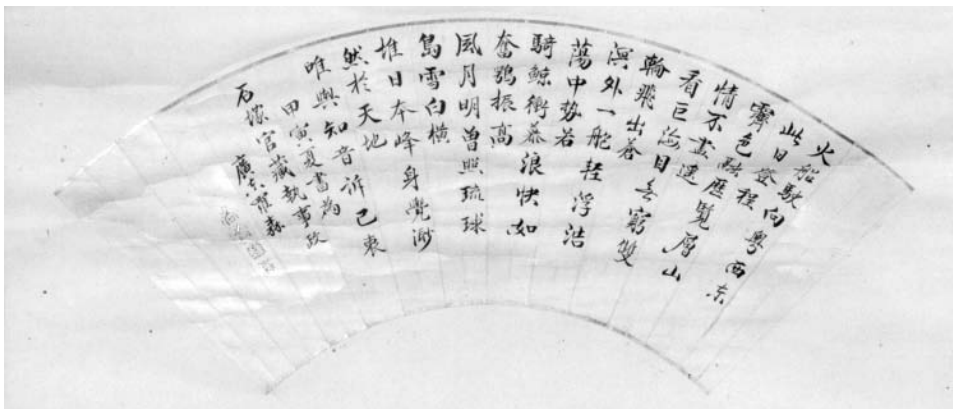 火船駛向粵西東
此日登程
霽色融歷覽層山
情不盡遙
看巨海目無窮雙
輪飛出蒼
溟外一舵輕浮浩
蕩中勢若
騎鯨衝暴浪快如
奮鶚振高
風月明曾照琉球
島雪白橫
堆日本峰身覺渺
然於天地
唯與知音訴己衷
甲寅夏書為
石塚官藏執事政
廣東羅森